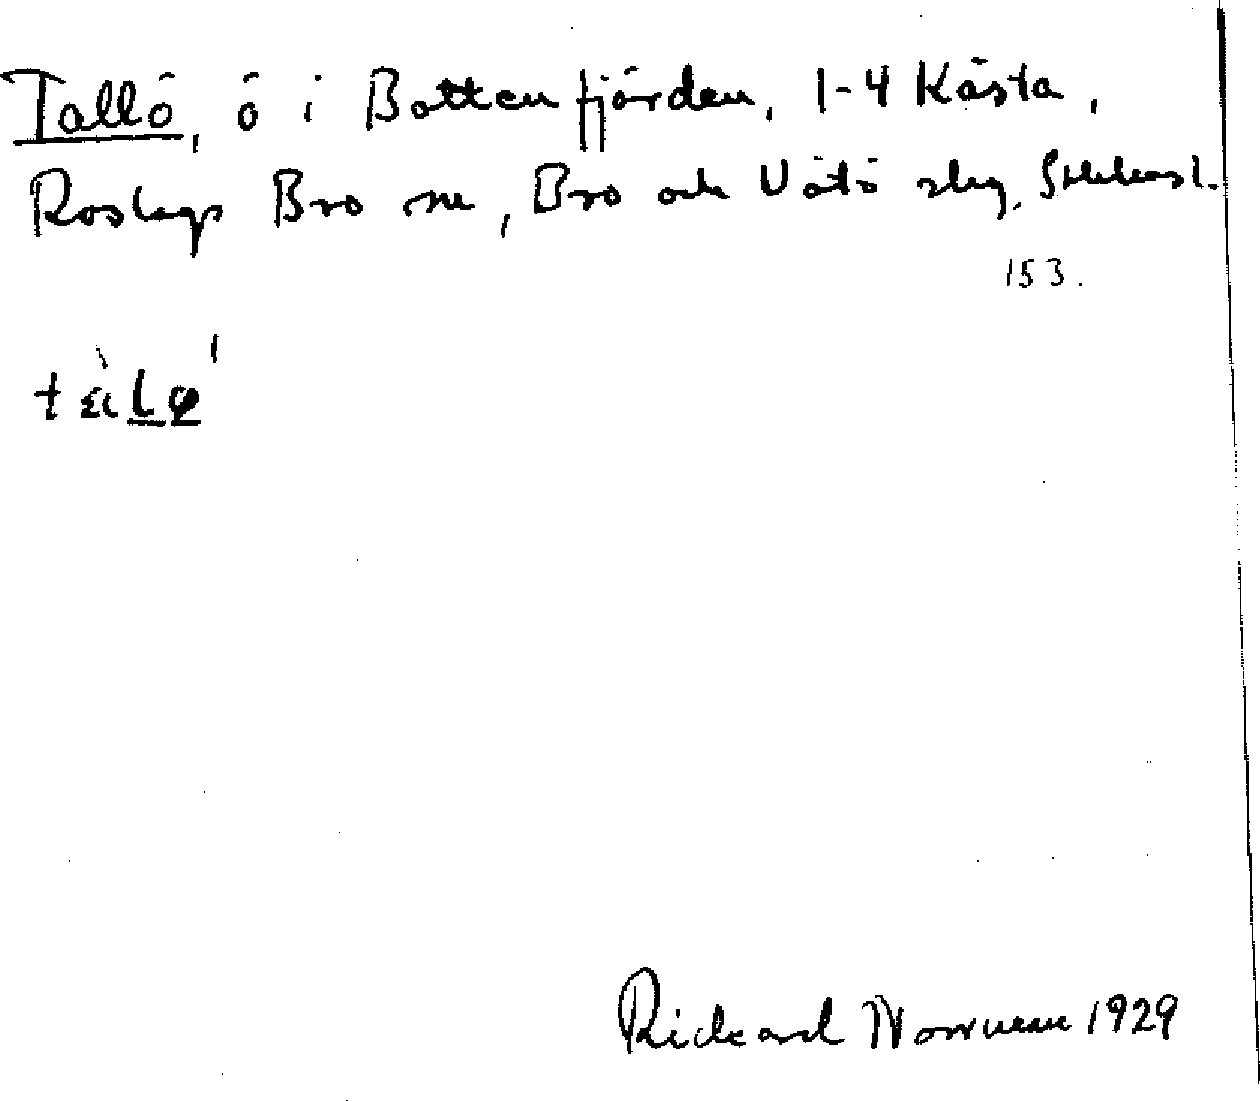 Tallö, ö i Bottenfjärden, 1-4 Kåsta,
Roslags Bro sn, Bro och Vätö skg. Sthlms l.
153.
Rickard Norrman 1929